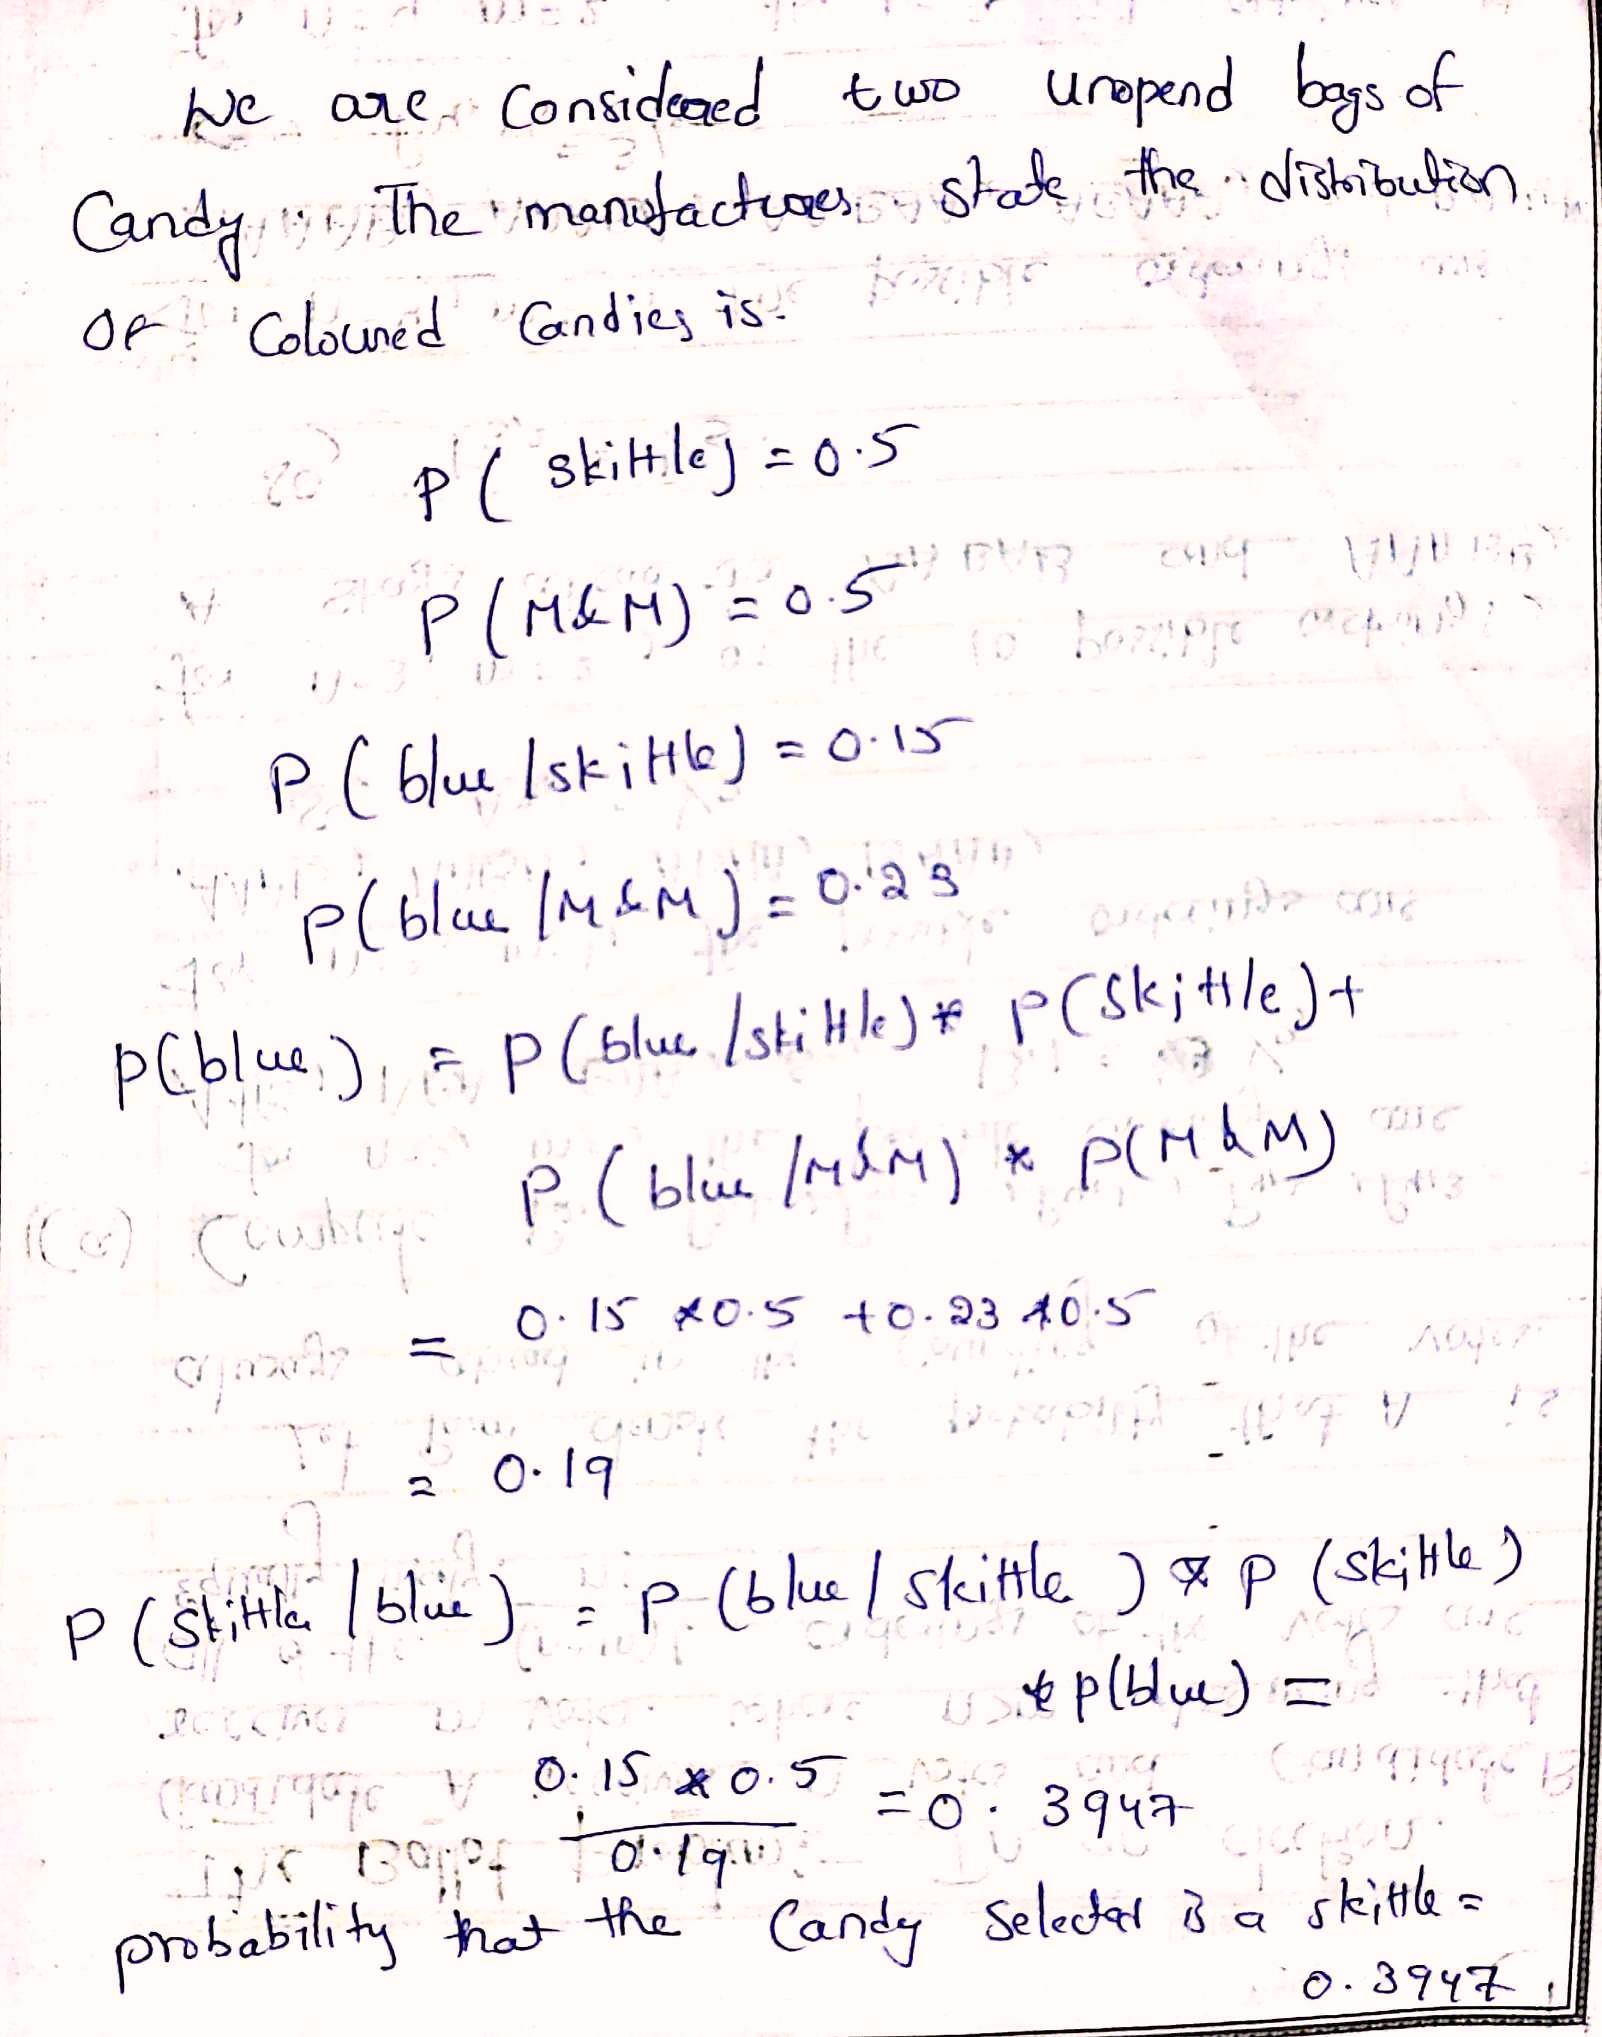 We are Considered two unopend bags of
Candy. The manufactures state the distribution
of Coloured Candies is.
P ( skittle) = 0.5
P (M&M) = 0.5
P ( blue /skittle) = 0.15
P( blue /M&M ) = 0.23
P(blue) = P (blue /skittle) * P(Skittle) +
P ( blue /M&M) * P(M&M)
= 0.15 *0.5 +0.23 *0.5
= 0.19
P (Skittle / blue) = P (blue / Skittle ) * P (Skittle)
* P(blue) =
0.15 * 0.5 = 0.3947
0.19
probability that the Candy Selected is a skittle =
0.3947